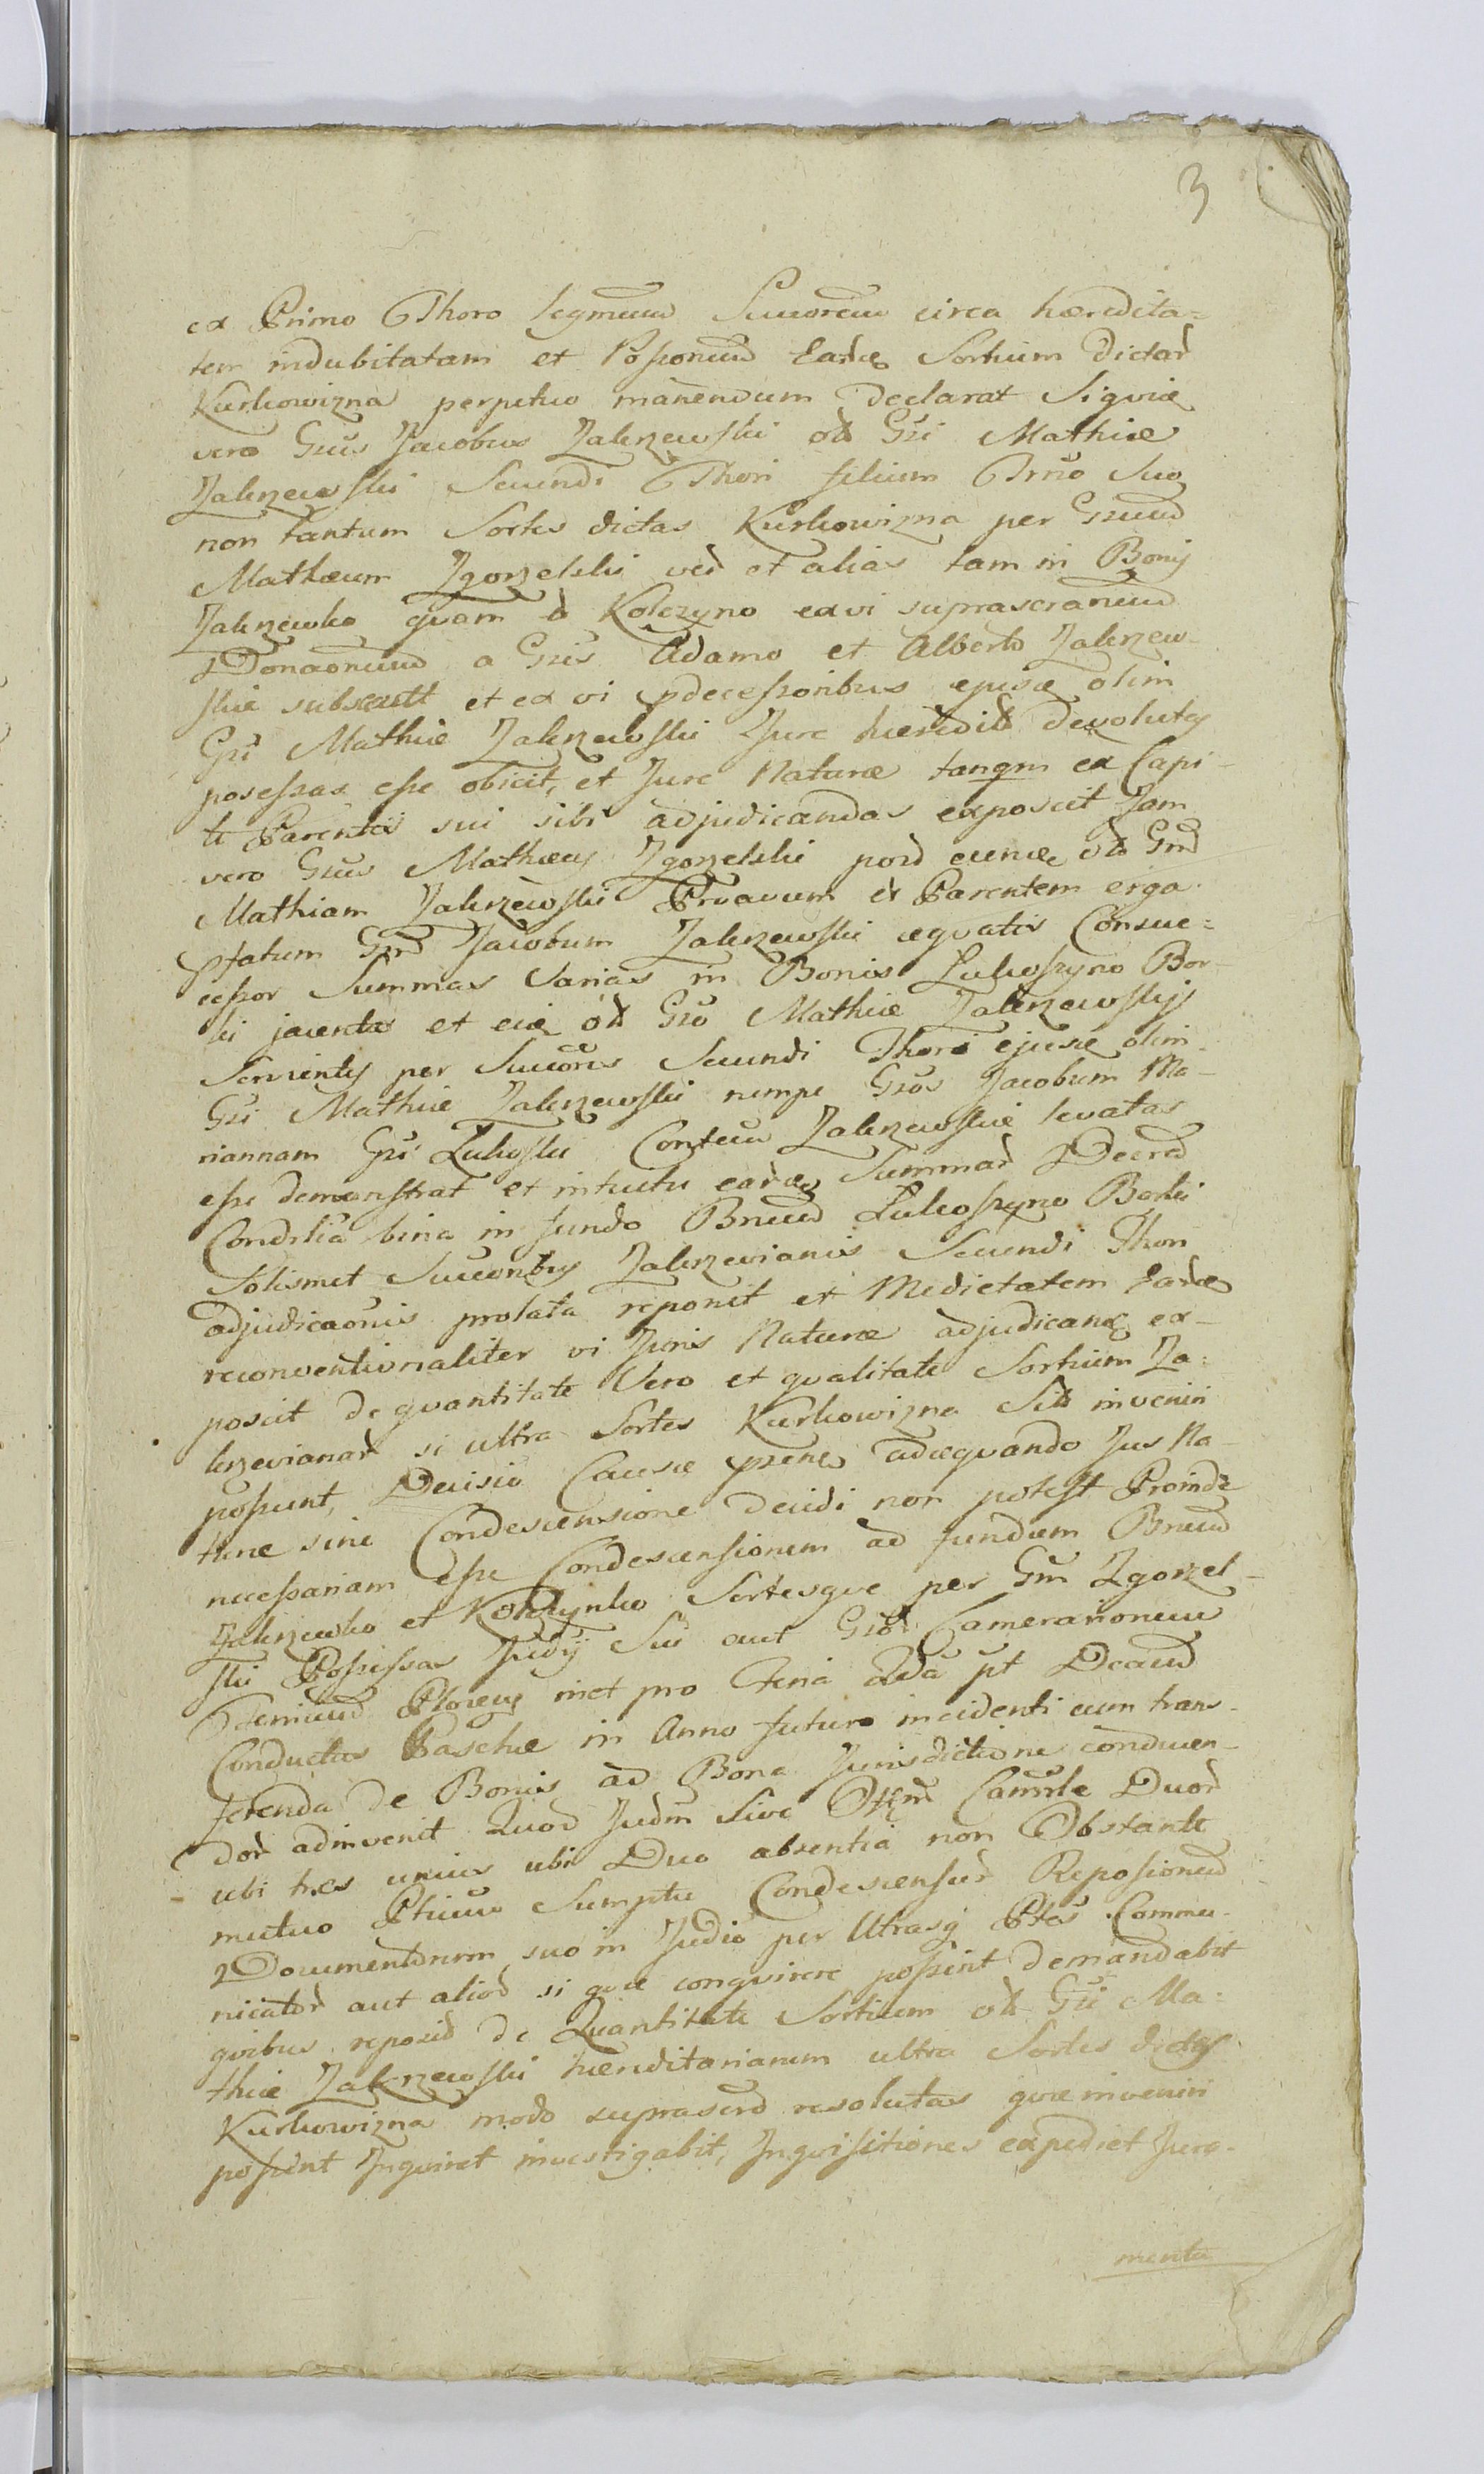 3
ex Primo Thoro legmuum Succorum circa hæredita=
tem indubitatam et Possonuum Eardæ Sortium dictar
Kurkowizna perpetuo manendum declarat Siqviæ
vero Gsus Jacobus Zakrzewski oli Gsi Mathiæ
Zakrzewski Secundi Thori filium Prno Suo
non tantum Sortes dictas Kurkowizna per Gsuum
Mathæum Zgorzelski ved et alias tam in Bonis
Zakrzewko qvam & Kolczyno ex vi suprascranuum
Donaonuum a Gsis Adamo et Alberto Zakrzew-
skie subscutt et ex vi pdecessoribus ejusæ olim
Gsi Mathiæ Zakrzewski Jure hæredit devolutas
possessas esse obicit, et Jure Naturæ tanqm ex Capi-
te Parentis sui sibi adjudicandas exposcit Jam
vero Gsus Mathæus Zgorzelski pord eunæ oli Gsm
Mathiam Zakrzewski Proavum et Parentem erga
pfatum Gsm Jacobum Zakrzewski æqvatis Consuc=
cessor Summas varias in Bonis Lukoszyno Bor-
ki jacentes et eidæ oli Gso Mathiæ Zakrzewskij
Servientes per Succores Secundi Thori ejusæ olim
Gsi Mathiæ Zakrzewski nempe Gsos Jacobum Ma-
riannam Gsi Lukoski Contem Zakrzewskie levatas
esse demonstrat et intuitu eardæ Summar Decred
Condsilia bina in fundo Bnuum Lukoszyno Borki
Solismet Succoribus Zakrzevianis Secundi Thori
adjudicaonis prolata reponit et Medietatem Eardæ
reconventionaliter vi Juris Naturæ adjudicanæ ex-
poscit de qvantitate Vero et qvalitate Sortium Za=
krzevianar si ultra Sortes Kurkowizna Sit inveniri
possunt, Decisio Causæ psenes adæqvando Jus Na-
turæ sine Condescensione decidi non potest Proinde
necessariam esse Condescensionem ad fundum Bnuum
Zakrzewko et Kolczynko Sortesqve per Gsm Zgorzel-
ski Possessas Judij Sui aut Gsor Camerarionuum
Ttenuum Plocens inct pro Feria 2da pt Dcauum
Conductus Paschæ in Anno futuro incidenti cum trans-
ferenda de Bonis ad Bona Jurisdictione conducen-
dor adinvenit Quod Judm Sive Ttrm Camrle Duor
ubi tres unius ubi Duo absentia non Obstante
mutuo Ptiuum Sumptu Condescensur Reposionuum
Documentorum suo in Judio per Utrasq Ptes Commu-
nicator aut alior si qvæ conqvirere possint demandabit
qvibus reposid de Quantitate Sortium oli Gsi Ma=
thiæ Zakrzewski hæreditariarum ultra Sortes dictas
Kurkowizna modo suprascrd resolutas qvæ inveniri
possint Inqviret investigabit, Inqvisitiones expediet Jura-
menta